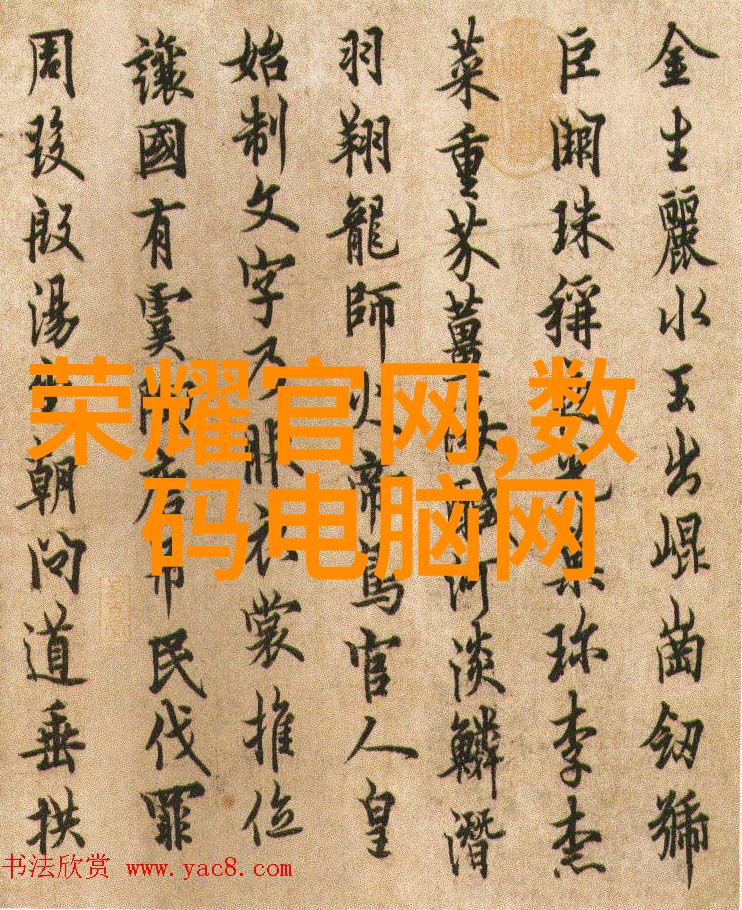 金生麗水玉出崐崗釼號
巨闕珠稱夜光菓珎李柰
菜重芥薑海鹹河淡鱗潛
羽翔龍師火帝鳥官人皇
始制文字乃服衣裳推位
讓國有虞陶唐弔民伐罪
周發殷湯坐朝問道垂拱
荣耀官网,数
码电脑网
书法欣赏 www.yac8.com